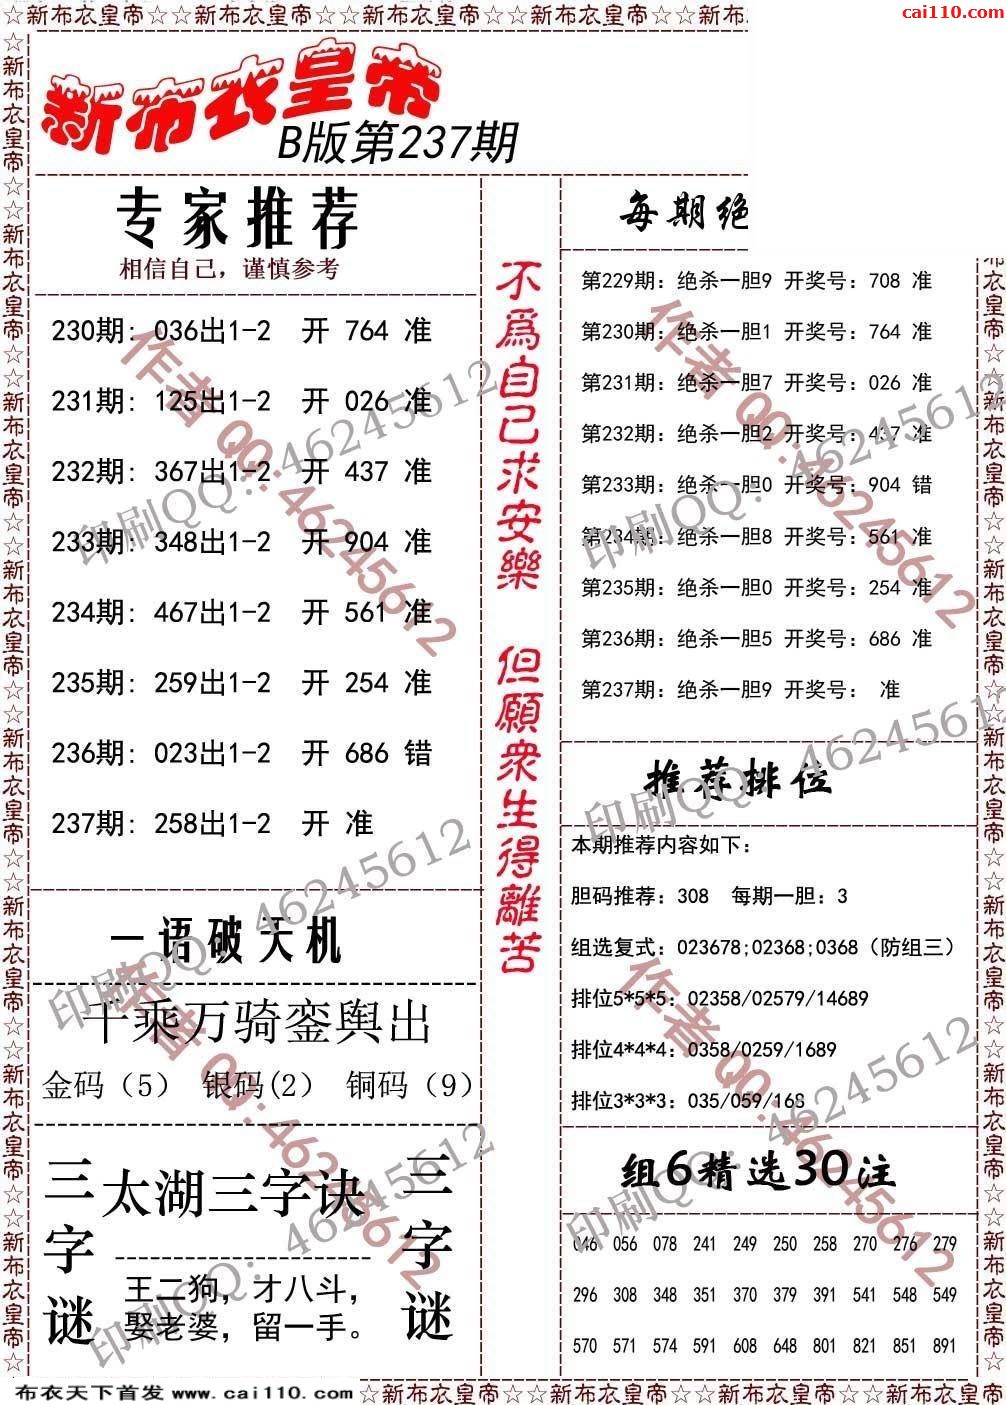 ☆新布衣皇帝☆☆新布衣皇帝☆☆新布衣皇帝☆☆新布衣皇帝☆☆新布
cai110.com
新布衣皇帝
B版第237期
专家推荐
相信自己，谨慎参考
230期: 036出1-2 开 764 准
231期: 125出1-2 开 026 准
232期: 367出1-2 开 437 准
233期: 348出1-2 开 904 准
234期: 467出1-2 开 561 准
235期: 259出1-2 开 254 准
236期: 023出1-2 开 686 错
237期: 258出1-2 开 准
一语破天机
千乘万骑銮舆出
金码（5） 银码(2） 铜码（9）
三字谜
太湖三字诀
王二狗，才八斗，
娶老婆，留一手。
三字谜
不為自己求安樂 但願衆生得離苦
每期绝
第229期: 绝杀一胆9 开奖号: 708 准
第230期: 绝杀一胆1 开奖号: 764 准
第231期: 绝杀一胆7 开奖号: 026 准
第232期: 绝杀一胆2 开奖号: 437 准
第233期: 绝杀一胆0 开奖号: 904 错
第234期: 绝杀一胆8 开奖号: 561 准
第235期: 绝杀一胆0 开奖号: 254 准
第236期: 绝杀一胆5 开奖号: 686 准
第237期: 绝杀一胆9 开奖号: 准
推荐排位
本期推荐内容如下:
胆码推荐: 308 每期一胆: 3
组选复式: 023678;02368;0368（防组三）
排位5*5*5: 02358/02579/14689
排位4*4*4: 0358/0259/1689
排位3*3*3: 035/059/168
组6精选30注
046 056 078 241 249 250 258 270 276 279
296 308 348 351 370 379 391 541 548 549
570 571 574 591 608 648 801 821 851 891
作者 QQ: 46245612
印刷QQ: 46245612
作者 QQ: 46245612
印刷QQ: 46245612
印刷QQ: 46245612
印刷QQ: 46245612
作者 QQ: 46245612
作者 QQ: 46245612
印刷QQ: 46245612
印刷QQ: 46245612
☆新布衣皇帝☆☆新布衣皇帝☆☆新布衣皇帝☆☆新布衣皇帝☆☆新布衣皇帝☆☆新布衣皇帝☆☆新布衣皇帝☆☆新布衣皇帝☆
衣皇帝☆☆新布衣皇帝☆☆新布衣皇帝☆☆新布衣皇帝☆☆新布衣皇帝☆☆新布衣皇帝☆☆新布衣皇帝☆
布衣天下首发 www.cai110.com
☆新布衣皇帝☆☆新布衣皇帝☆☆新布衣皇帝☆☆新布衣皇帝☆